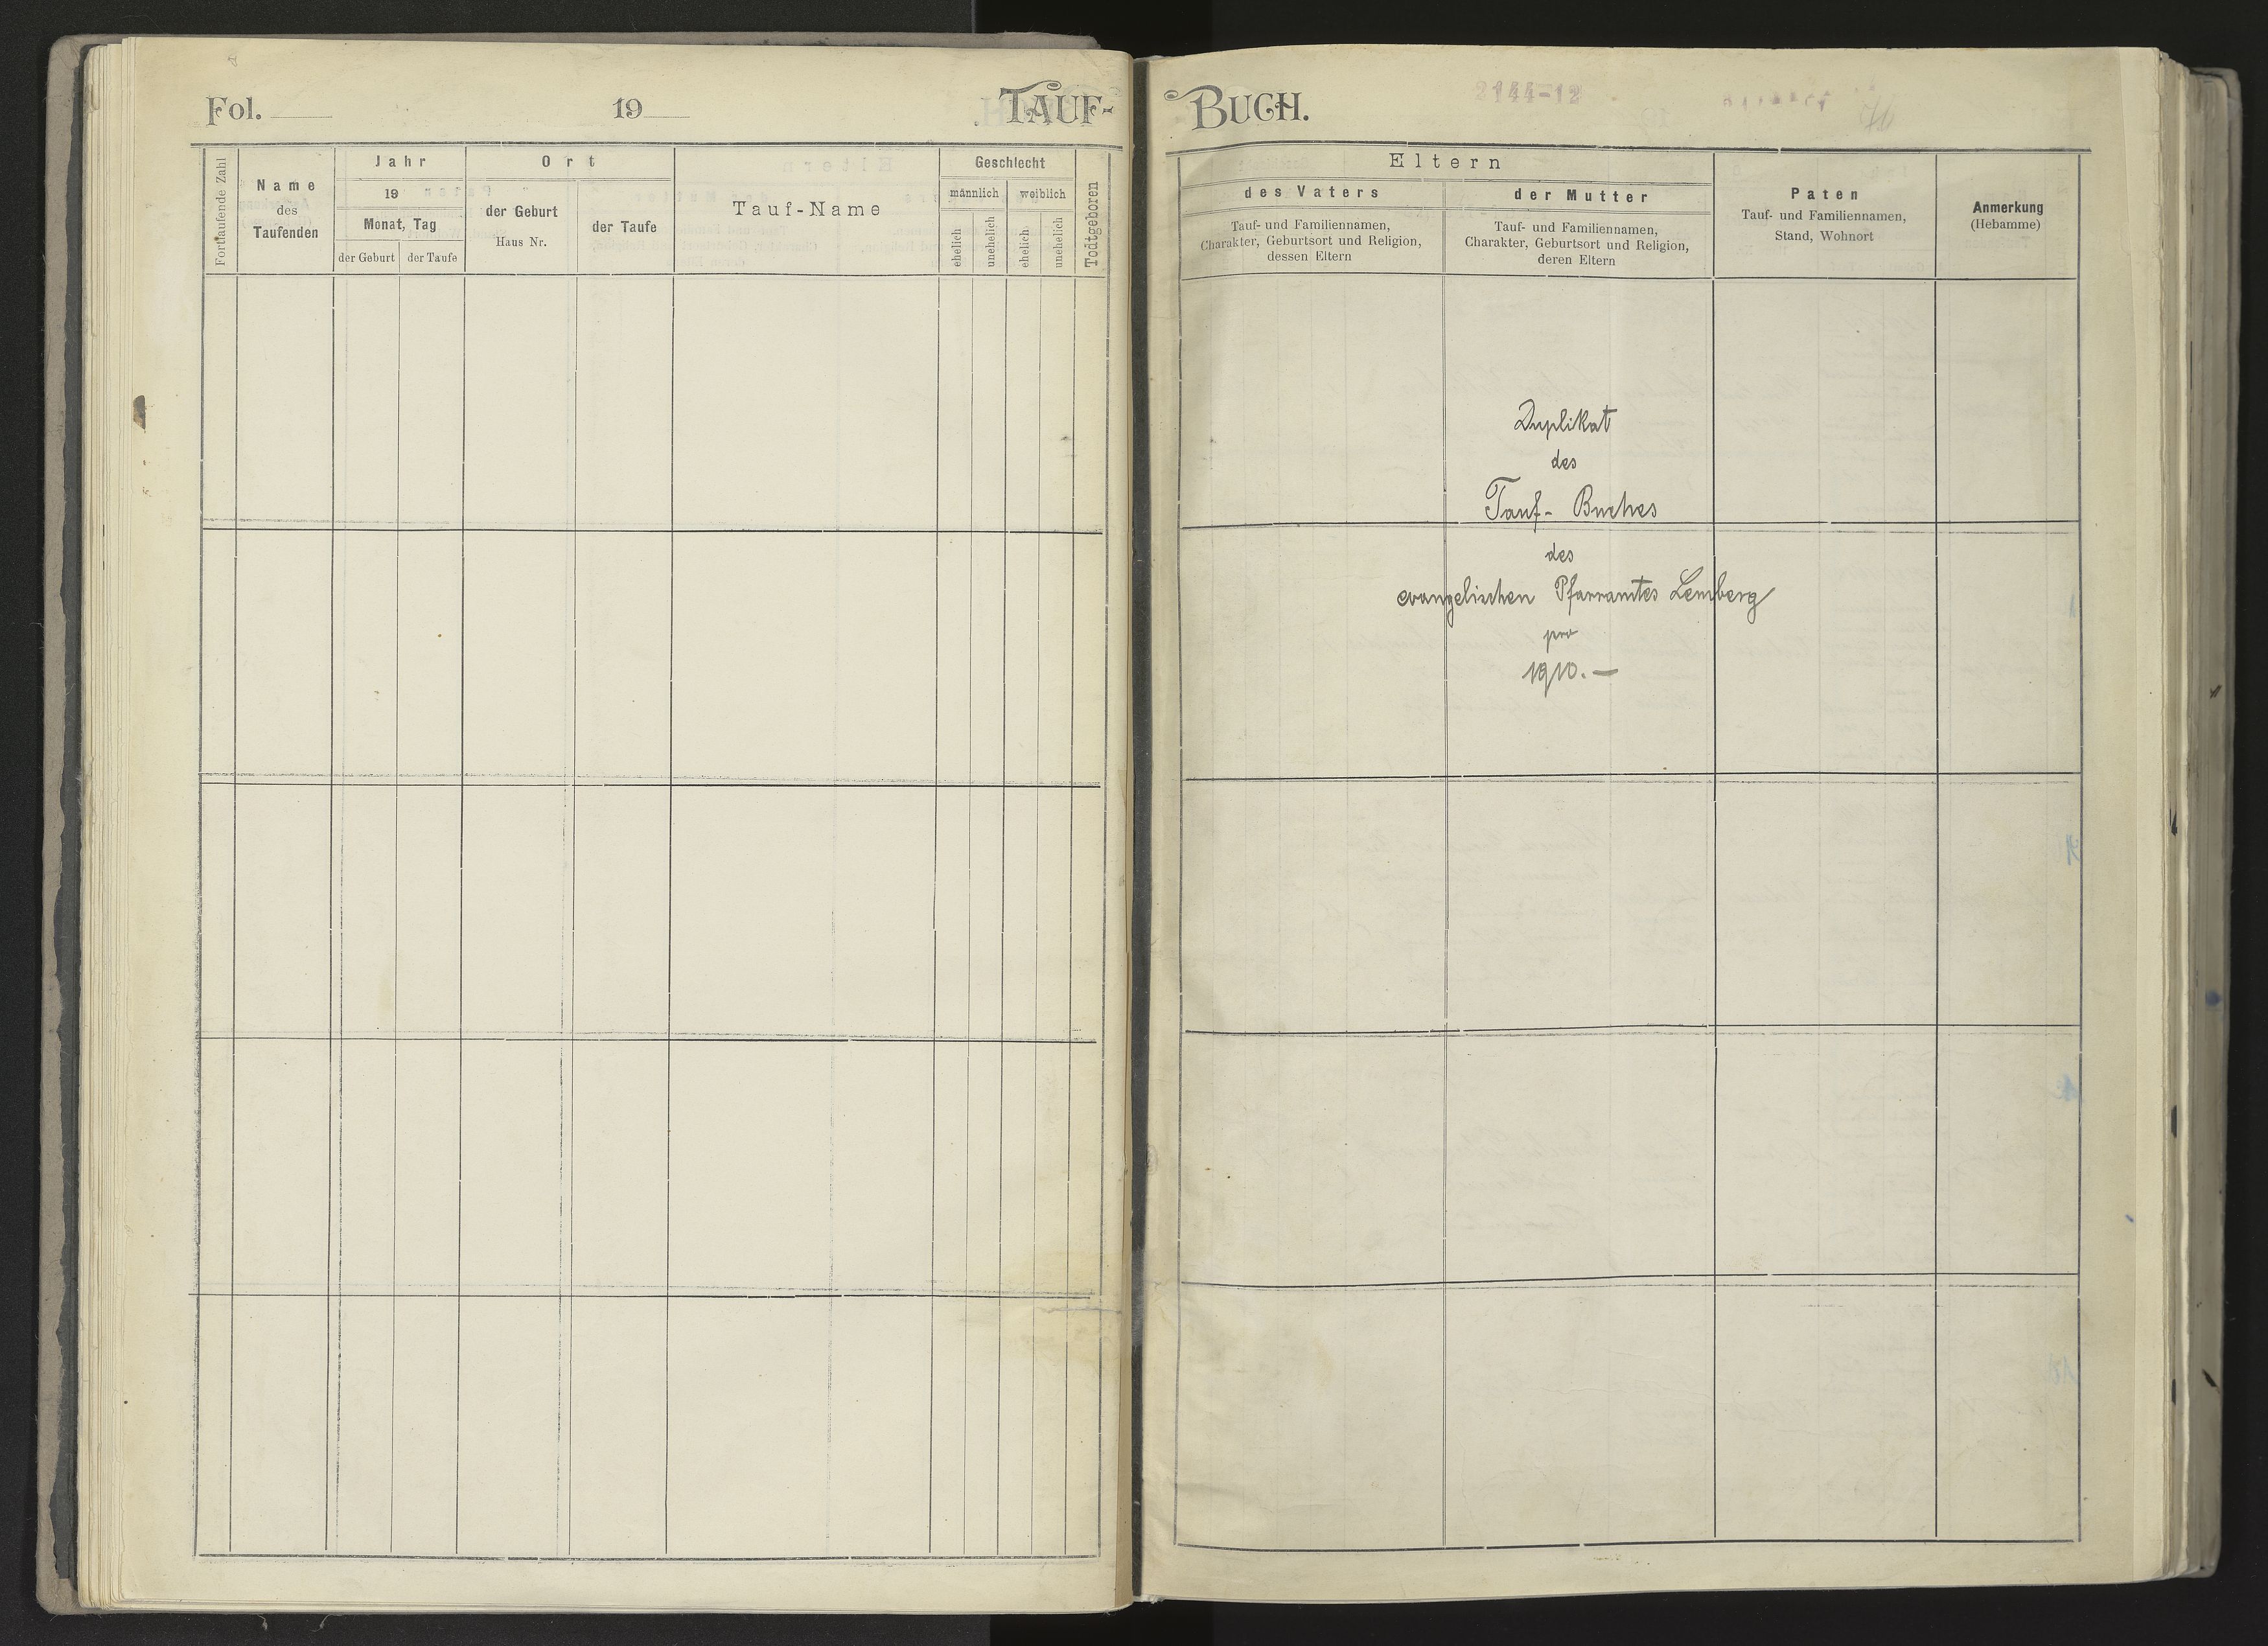 Fol. 19 TAUF-
Fortlaufende Zahl
Name
des
Taufenden
Jahr
19
Monat, Tag
der Geburt der Taufe
Ort
der Geburt
Haus Nr.
der Taufe
Tauf-Name
Geschlecht
männlich weiblich
ehelich unehelich ehelich unehelich
Todtgeboren
BUCH.
2144-12
Eltern
des Vaters
Tauf- und Familiennamen,
Charakter, Geburtsort und Religion,
dessen Eltern
der Mutter
Tauf- und Familiennamen,
Charakter, Geburtsort und Religion,
deren Eltern
Paten
Tauf- und Familiennamen,
Stand, Wohnort
Anmerkung
(Hebamme)
Duplikat
des
Tauf- Buches
des
evangelischen Pfarramtes Lemberg
pro
1910. —